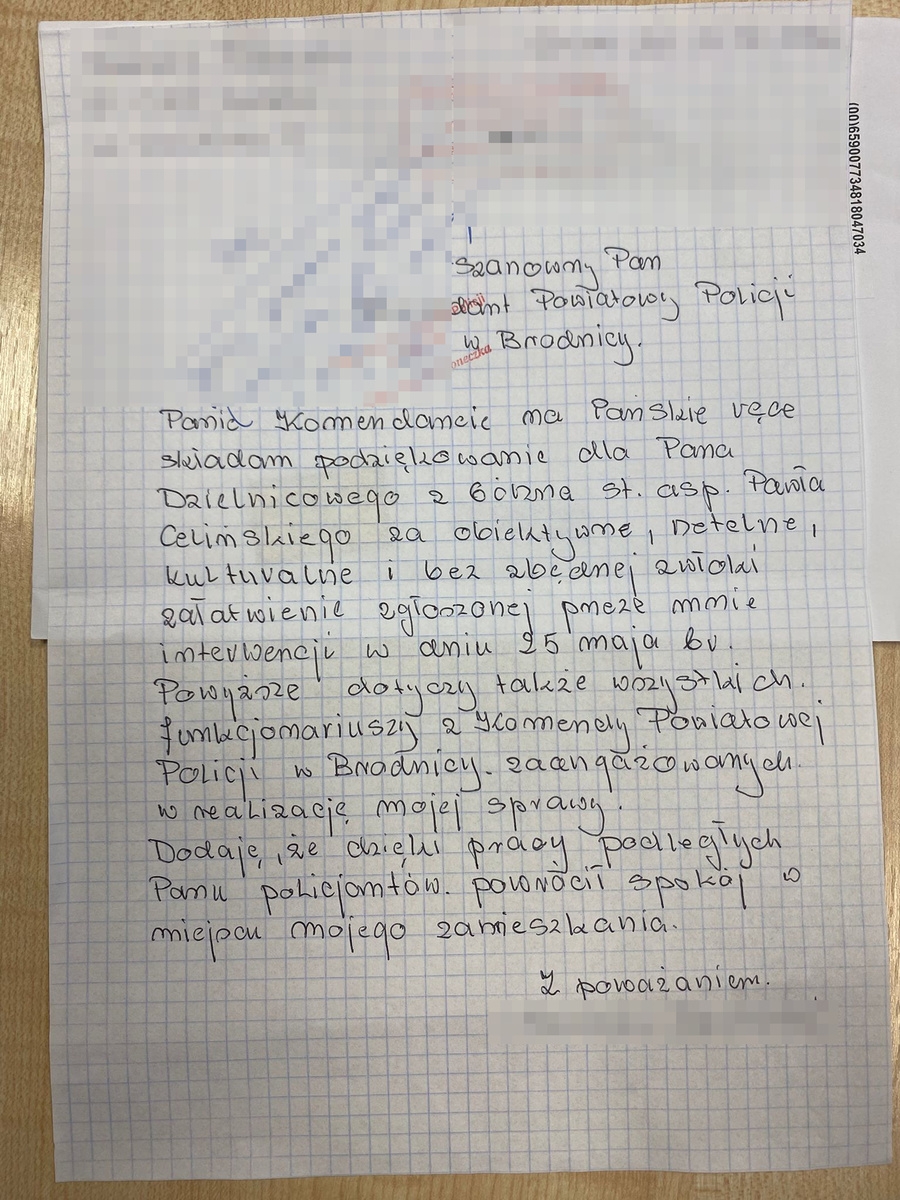 (00)659007734818047034
Szanowny Pan
dant Powiatowy Policji
w Brodnicy.
oneczka
Panie Komendancie na Pańskie ręce
składam podziękowanie dla Pana
Dzielnicowego z Górzna st. asp. Pawła
Celińskiego za obiektywne, rzetelne,
kulturalne i bez zbędnej zwłoki
załatwienie zgłoszonej przeze mnie
interwencji w dniu 25 maja br.
Powyższe dotyczy także wszystkich.
funkcjonariuszy z Komendy Powiatowej
Policji w Brodnicy. zaangażowanych.
w realizację mojej sprawy.
Dodaję, że dzięki pracy podległych
Panu policjantów. powrócił spokój w
miejscu mojego zamieszkania.
Z poważaniem.